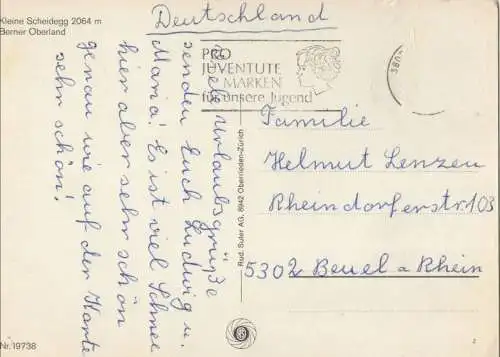 Kleine Scheidegg 2064 m
Berner Oberland
Deutschland
PRO
JUVENTUTE
MARKEN
für unsere Jugend
Viele Urlaubsgrüße
senden Euch Ludwig u.
Maria! Es ist viel Schnee
hier aber sehr schön
genau wie auf der Karte
sehr schön!
Rud. Suter AG, 8942 Oberrieden-Zürich
Familie
Helmut Lenzen
Rheindorferstr. 103
5302 Beuel a Rhein
Nr. 19738